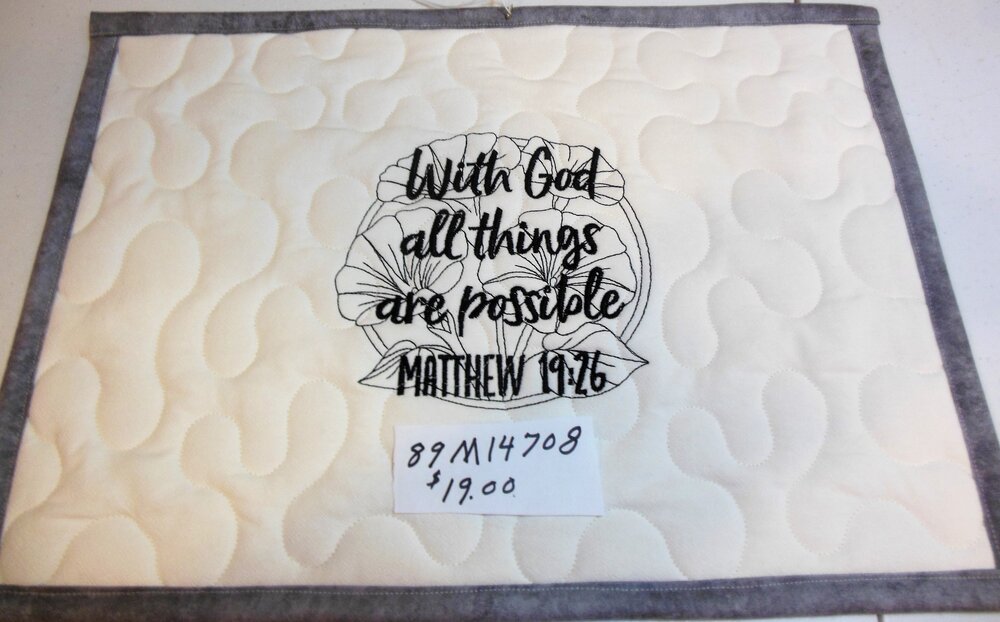 With God
all things
are possible
MATTHEW 19:26
89M14708
$19.00